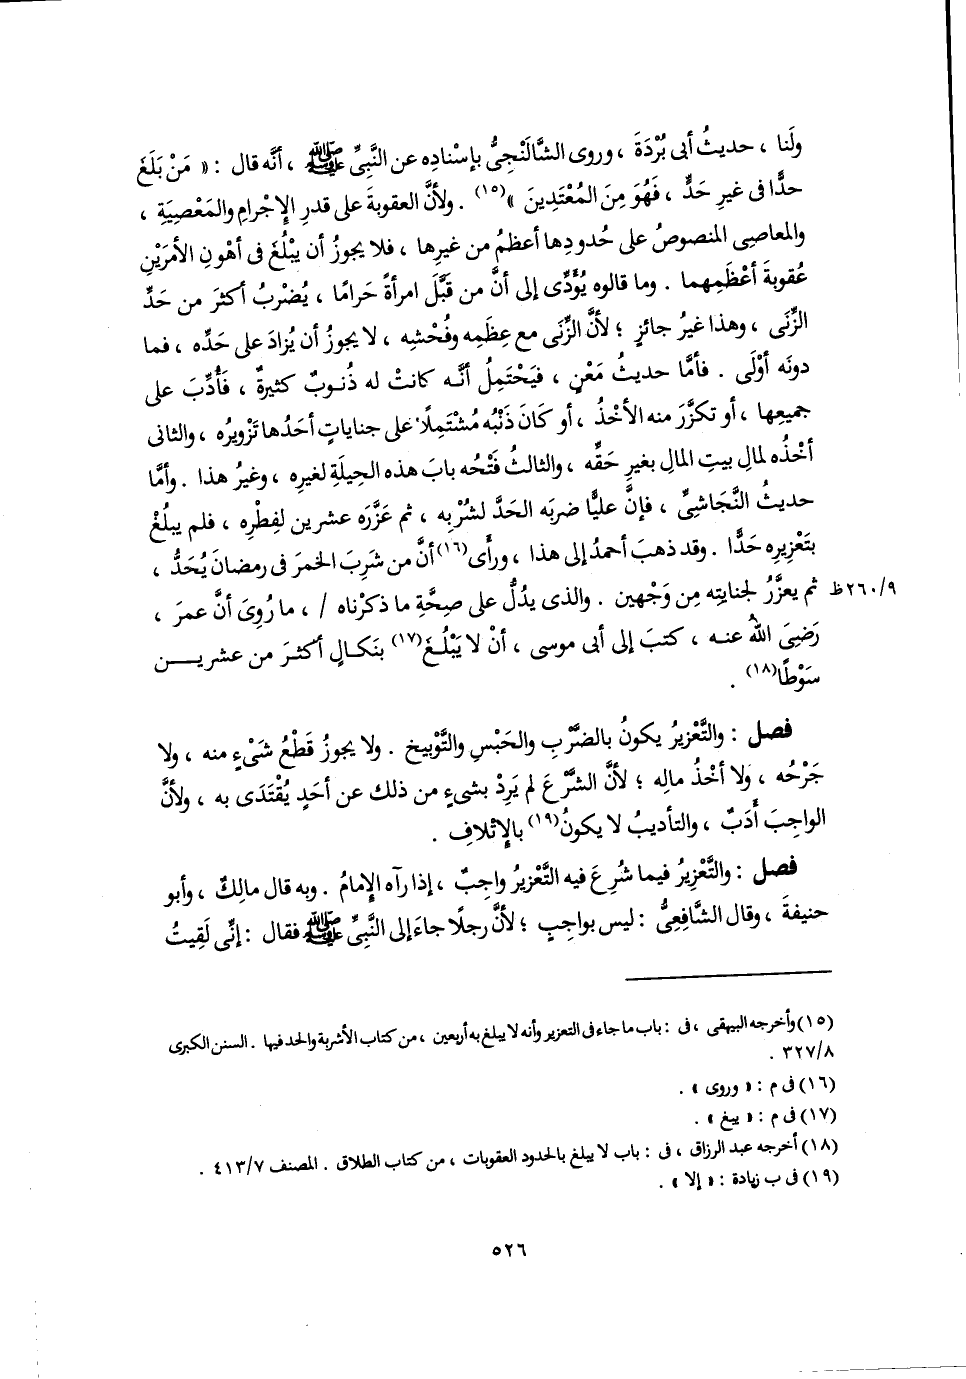 ولَنا ، حديثُ أبى بُرْدَةَ ، وروى الشَّالَنْجِىُّ بإسْنادِه عن النَّبِىِّ ﷺ ، أنَّه قال : « مَنْ بَلَغَ
حدًّا فى غيرِ حَدٍّ ، فَهُوَ مِنَ المُعْتَدِينَ »(١٥) . ولأنَّ العقوبةَ على قدرِ الإجْرامِ والمَعْصِيَةِ ،
والمعاصِى المنصوصُ على حُدودِها أعظمُ من غيرِها ، فلا يجوزُ أن يبْلُغَ فى أهْونِ الأمرَيْنِ
عُقوبةَ أعْظَمِهما . وما قالوه يُؤَدِّى إلى أنَّ من قَبَّلَ امرأةً حَرامًا ، يُضْرَبُ أكثرَ من حَدِّ
الزِّنَى ، وهذا غيرُ جائزٍ ؛ لأنَّ الزِّنَى مع عِظَمِه وفُحْشِه ، لا يجوزُ أن يُزادَ على حَدِّه ، فما
دونَه أوْلَى . فأمَّا حديثُ مَعْنٍ ، فيَحْتَمِلُ أنَّه كانتْ له ذُنوبٌ كثيرةٌ ، فَأُدِّبَ على
جميعِها ، أو تكرَّرَ منه الأخْذُ ، أو كَانَ ذَنْبُه مُشْتَمِلًا على جناياتٍ أحَدُها تَزْويرُه ، والثانى
أخْذُه لمالِ بيتِ المالِ بغيرِ حَقِّه ، والثالثُ فَتْحُه بابَ هذه الحِيلَةِ لغيرِه ، وغيرُ هذا . وأمَّا
حديثُ النَّجَاشِىِّ ، فإنَّ عليًّا ضربَه الحَدَّ لشُرْبِه ، ثم عَزَّرَه عشرين لفِطْرِه ، فلم يبلُغْ
بتَعْزِيرِه حَدًّا . وقد ذهبَ أحمدُ إلى هذا ، ورأى(١٦) أنَّ من شَرِبَ الخمرَ فى رمضانَ يُحَدُّ ،
ثم يعزَّرُ لجنايتِه مِن وَجْهين . والذى يدُلُّ على صِحَّةِ ما ذكرْناه / ، ما رُوِىَ أنَّ عمرَ ، ٢٦٠/٩ظ
رَضِىَ اللهُ عنه ، كتبَ إلى أبى موسى ، أنْ لا يَبْلُغَ(١٧) بنَكالٍ أكثرَ من عشرين
سَوْطًا(١٨) .
فصل : والتَّعْزِيرُ يكونُ بالضَّرْبِ والحَبْسِ والتَّوْبيخِ . ولا يجوزُ قَطْعُ شَىْءٍ منه ، ولا
جَرْحُه ، ولا أخْذُ مالِه ؛ لأنَّ الشَّرْعَ لم يَرِدْ بشىءٍ من ذلك عن أحَدٍ يُقْتَدَى به ، ولأنَّ
الواجِبَ أَدَبٌ ، والتأديبُ لا يكونُ(١٩) بالإتْلافِ .
فصل : والتَّعْزِيرُ فيما شُرِعَ فيه التَّعْزيرُ واجِبٌ ، إذا رآه الإمامُ . وبه قال مالِكٌ ، وأبو
حنيفةَ ، وقال الشَّافِعِىُّ : ليس بواجِبٍ ؛ لأنَّ رجلًا جاءَ إلى النَّبِىِّ ﷺ فقال : إنِّى لَقِيتُ
(١٥) وأخرجه البيهقى ، فى : باب ما جاء فى التعزير وأنه لا يبلغ به أربعين ، من كتاب الأشربة والحد فيها . السنن الكبرى
٣٢٧/٨ .
(١٦) فى م : « وروى » .
(١٧) فى م : « يبغ » .
(١٨) أخرجه عبد الرزاق ، فى : باب لا يبلغ بالحدود العقوبات ، من كتاب الطلاق . المصنف ٤١٣/٧ .
(١٩) فى ب زيادة : « إلا » .
٥٢٦